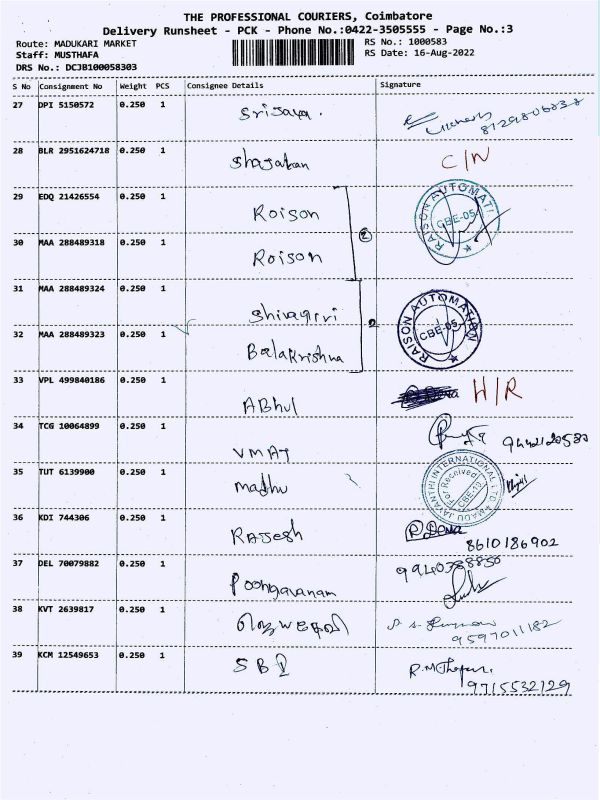 THE PROFESSIONAL COURIERS, Coimbatore
Delivery Runsheet - PCK - Phone No.:0422-3505555 - Page No.:3
Route: MADUKARI MARKET
RS No.: 1000583
Staff: MUSTHAFA
RS Date: 16-Aug-2022
DRS No.: DCJB100058303
S No Consignment No Weight PCS Consignee Details Signature
27 DPI 5150572 0.250 1 Srijaya.
8129806838
28 BLR 2951624718 0.250 1 Shajahan C/N
29 EDQ 21426554 0.250 1 Roison
RAISON AUTOMATI
CBE-05
30 MAA 288489318 0.250 1 Roison
2
31 MAA 288489324 0.250 1 Shivagiri
RAISON AUTOMATION
CBE-05
32 MAA 288489323 0.250 1 Balakrishna
2
33 VPL 499840186 0.250 1 ABhul H/R
34 TCG 10064899 0.250 1 VMAT
9442120580
35 TUT 6139900 0.250 1 Madhu
MADU JAYANTHI INTERNATIONAL LTD
For Received
CBE-19
36 KDI 744306 0.250 1 RAJesh R. Deva
8610186902
37 DEL 70079882 0.250 1 Poongavanam
9940388850
38 KVT 2639817 0.250 1
9597011182
39 KCM 12549653 0.250 1 SBI
9715532129